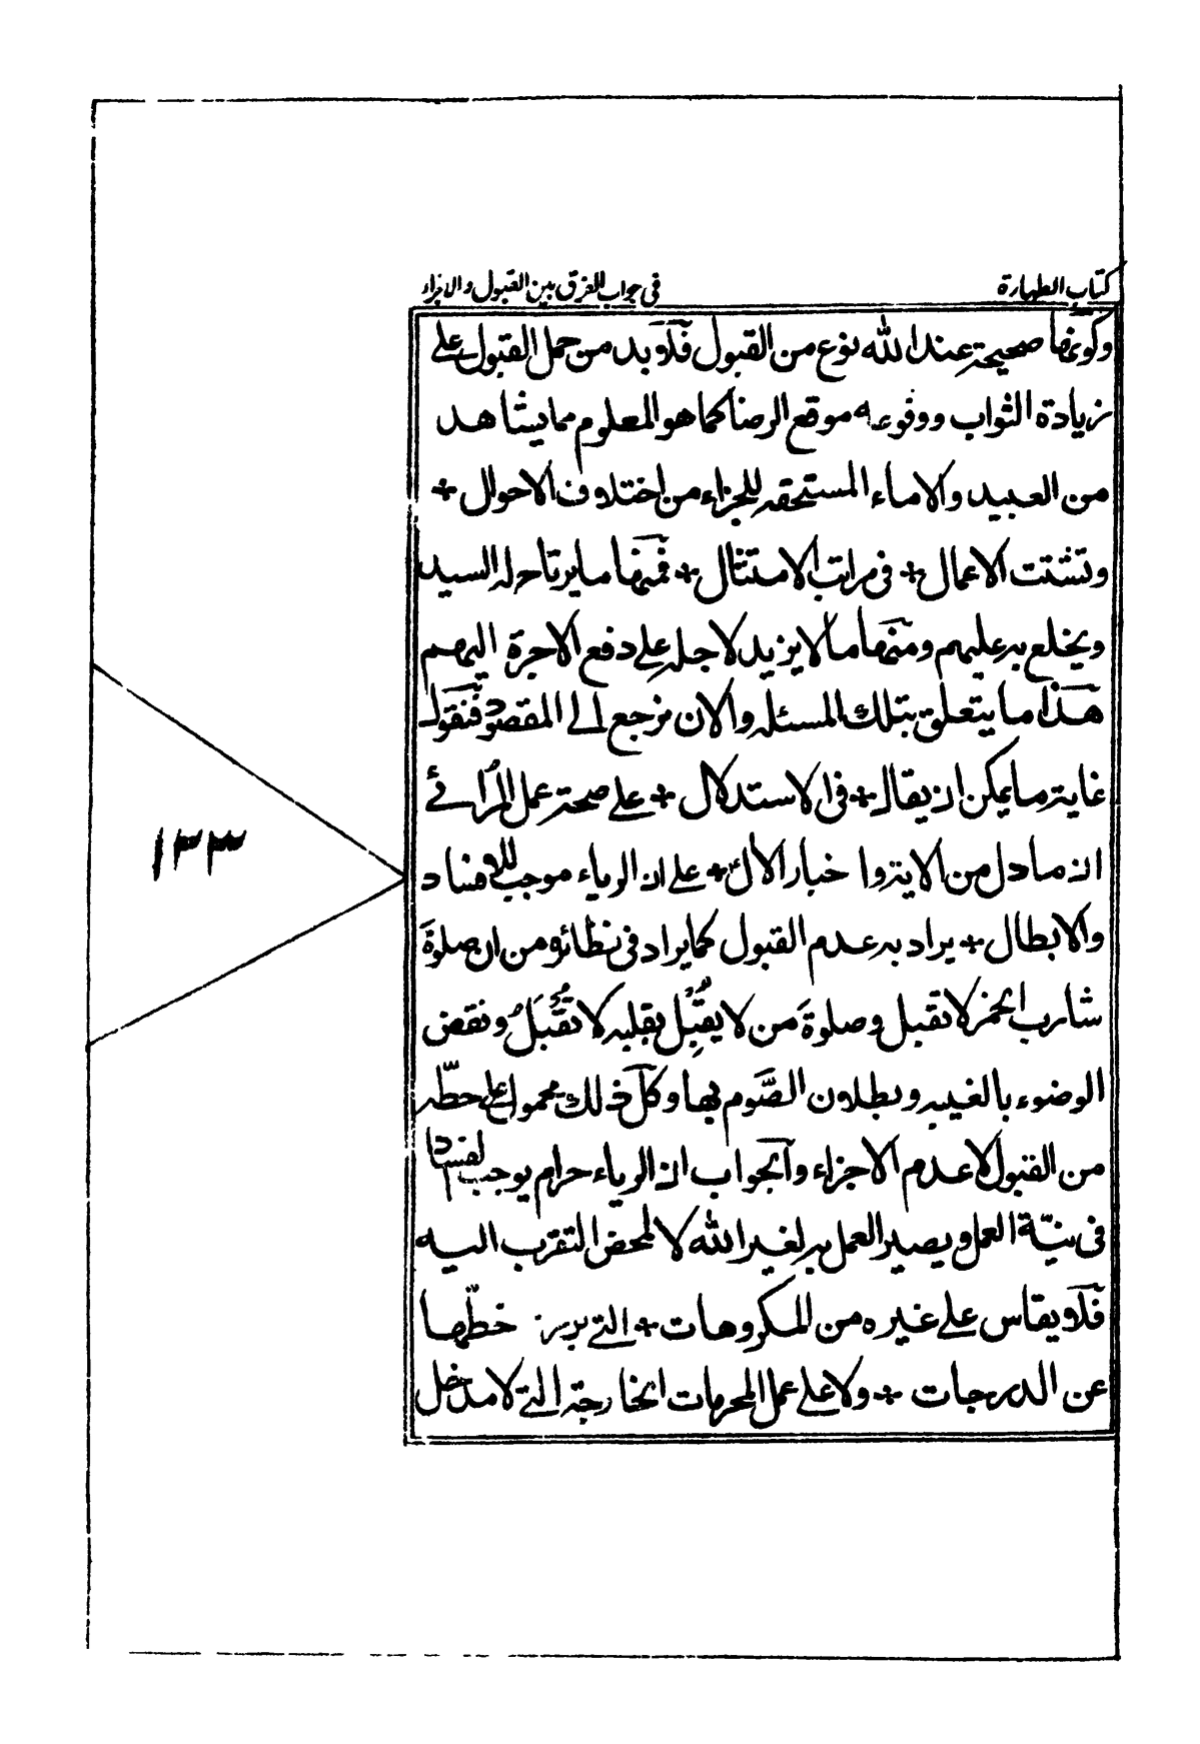 كتاب الطهارة
في جواب الفرق بين القبول والاجزاء
وكونها صحيحة عند الله نوع من القبول فلا بد من حمل القبول على
زيادة الثواب ووقوعه موقع الرضا كما هو المعلوم مما يشاهد
من العبيد والاماء المستحقه للجزاء من اختلاف الاحوال +
وتشتت الاعمال + في مراتب الامتثال + فمنها ما يرتاح له السيد
ويخلع به عليهم ومنها ما لا يزيد لاجله على دفع الاجرة اليهم
هذا ما يتعلق بتلك المسئله والان نرجع الى المقصود فنقول
غاية ما يمكن ان يقال + في الاستدلال + على صحة عمل المرائے
ان ما دل من الاية وا خبار الأل + على ان الرياء موجب للافساد
والابطال + يراد به عدم القبول كما يراد في نظائره من ان صلوة
شارب الخمر لا تقبل وصلوة من لا يُقْبِل بقلبه لا تُقْبَلُ ونقض
الوضوء بالغيبه وبطلان الصَّوم بها وكل ذلك محمول على حطّه
من القبول لا عدم الاجزاء والجواب ان الرياء حرام يوجب لفساد
في نيّة العمل ويصير العمل به لغير الله لا لمحض التقرب اليه
فلا يقاس على غيره من المكروهات + التي حطّها
عن الدرجات + ولا على عمل المحرمات الخارجة التي لا مدخل
١٣٣